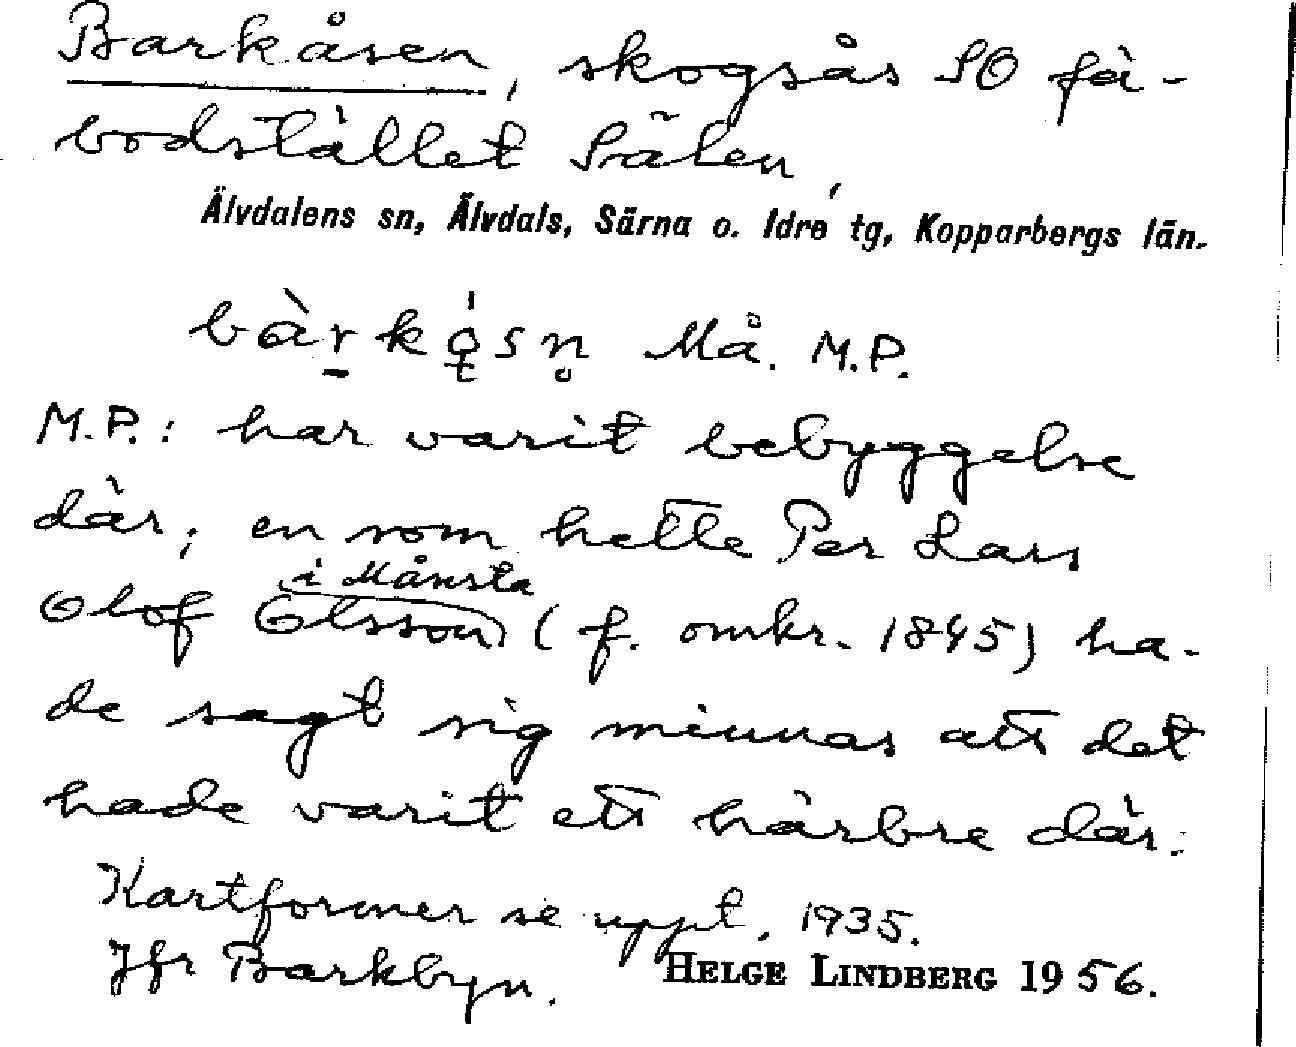 Barkåsen, skogsås SO fä-
bodstället Sälen,
Älvdalens sn, Älvdals, Särna o. Idre tg, Kopparbergs län.
Må. M.P.
M.P.: har varit bebyggelse
där; en som hette Per Lars
i Månsta
Olof Olsson (f. omkr. 1845) ha-
de sagt sig minnas att det
hade varit ett härbre där.
Kartformer se uppt. 1935.
Jfr Barkbyn.
HELGE LINDBERG 1956.